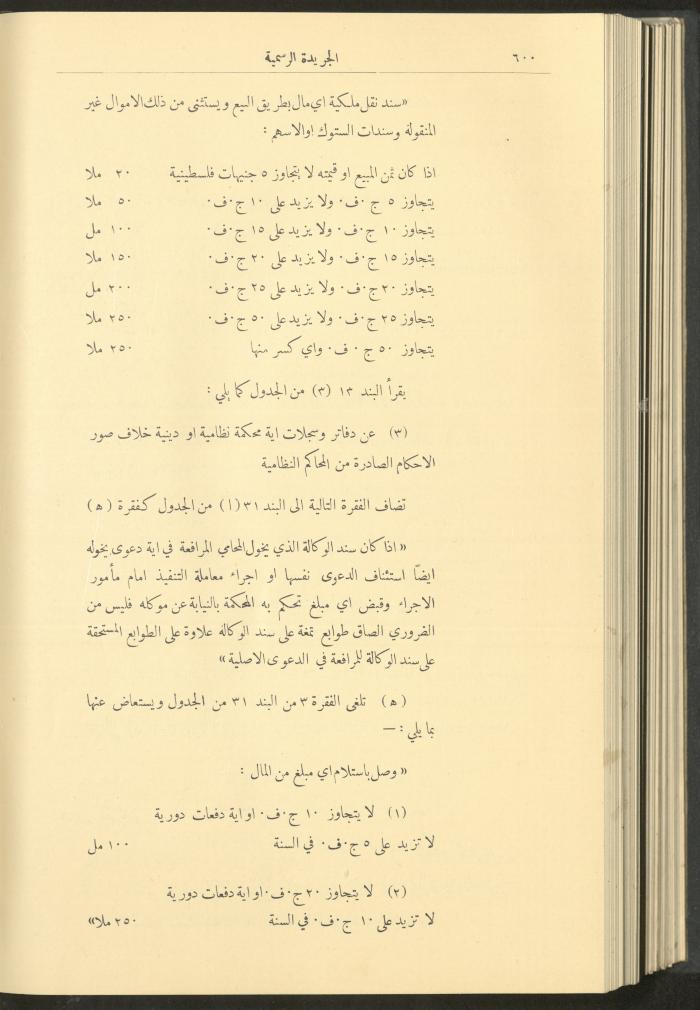 ٦٠٠ الجريدة الرسمية
«سند نقل ملكية اي مال بطريق البيع ويستثنى من ذلك الاموال غير
المنقولة وسندات الستوك او الاسهم :
اذا كان ثمن المبيع او قيمته لا يتجاوز ٥ جنيهات فلسطينية ٢٠ ملا
يتجاوز ٥ ج.ف. ولا يزيد على ١٠ ج.ف. ٥٠ ملا
يتجاوز ١٠ ج.ف. ولا يزيد على ١٥ ج.ف. ١٠٠ مل
يتجاوز ١٥ ج.ف. ولا يزيد على ٢٠ ج.ف. ١٥٠ ملا
يتجاوز ٢٠ ج.ف. ولا يزيد على ٢٥ ج.ف. ٢٠٠ مل
يتجاوز ٢٥ ج.ف. ولا يزيد على ٥٠ ج.ف. ٢٥٠ ملا
يتجاوز ٥٠ ج.ف. واي كسر منها ٢٥٠ ملا
يقرأ البند ١٣ (٣) من الجدول كما يلي :
(٣) عن دفاتر وسجلات اية محكمة نظامية او دينية خلاف صور
الاحكام الصادرة من المحاكم النظامية
تضاف الفقرة التالية الى البند ٣١ (ا) من الجدول كفقرة (ه)
«اذا كان سند الوكالة الذي يخول المحامي المرافعة في اية دعوى يخوله
ايضاً استئناف الدعوى نفسها او اجراء معاملة التنفيذ امام مأمور
الاجراء وقبض اي مبلغ تحكم به المحكمة بالنيابة عن موكله فليس من
الضروري الصاق طوابع تمغة على سند الوكالة علاوة على الطوابع المستحقة
على سند الوكالة للمرافعة في الدعوى الاصلية»
(ه) تلغى الفقرة ٣ من البند ٣١ من الجدول ويستعاض عنها
بما يلي : —
«وصل باستلام اي مبلغ من المال :
(١) لا يتجاوز ١٠ ج.ف. او اية دفعات دورية
لا تزيد على ٥ ج.ف. في السنة ١٠٠ مل
(٢) لا يتجاوز ٢٠ ج.ف. او اية دفعات دورية
لا تزيد على ١٠ ج.ف. في السنة ٢٥٠ ملا»